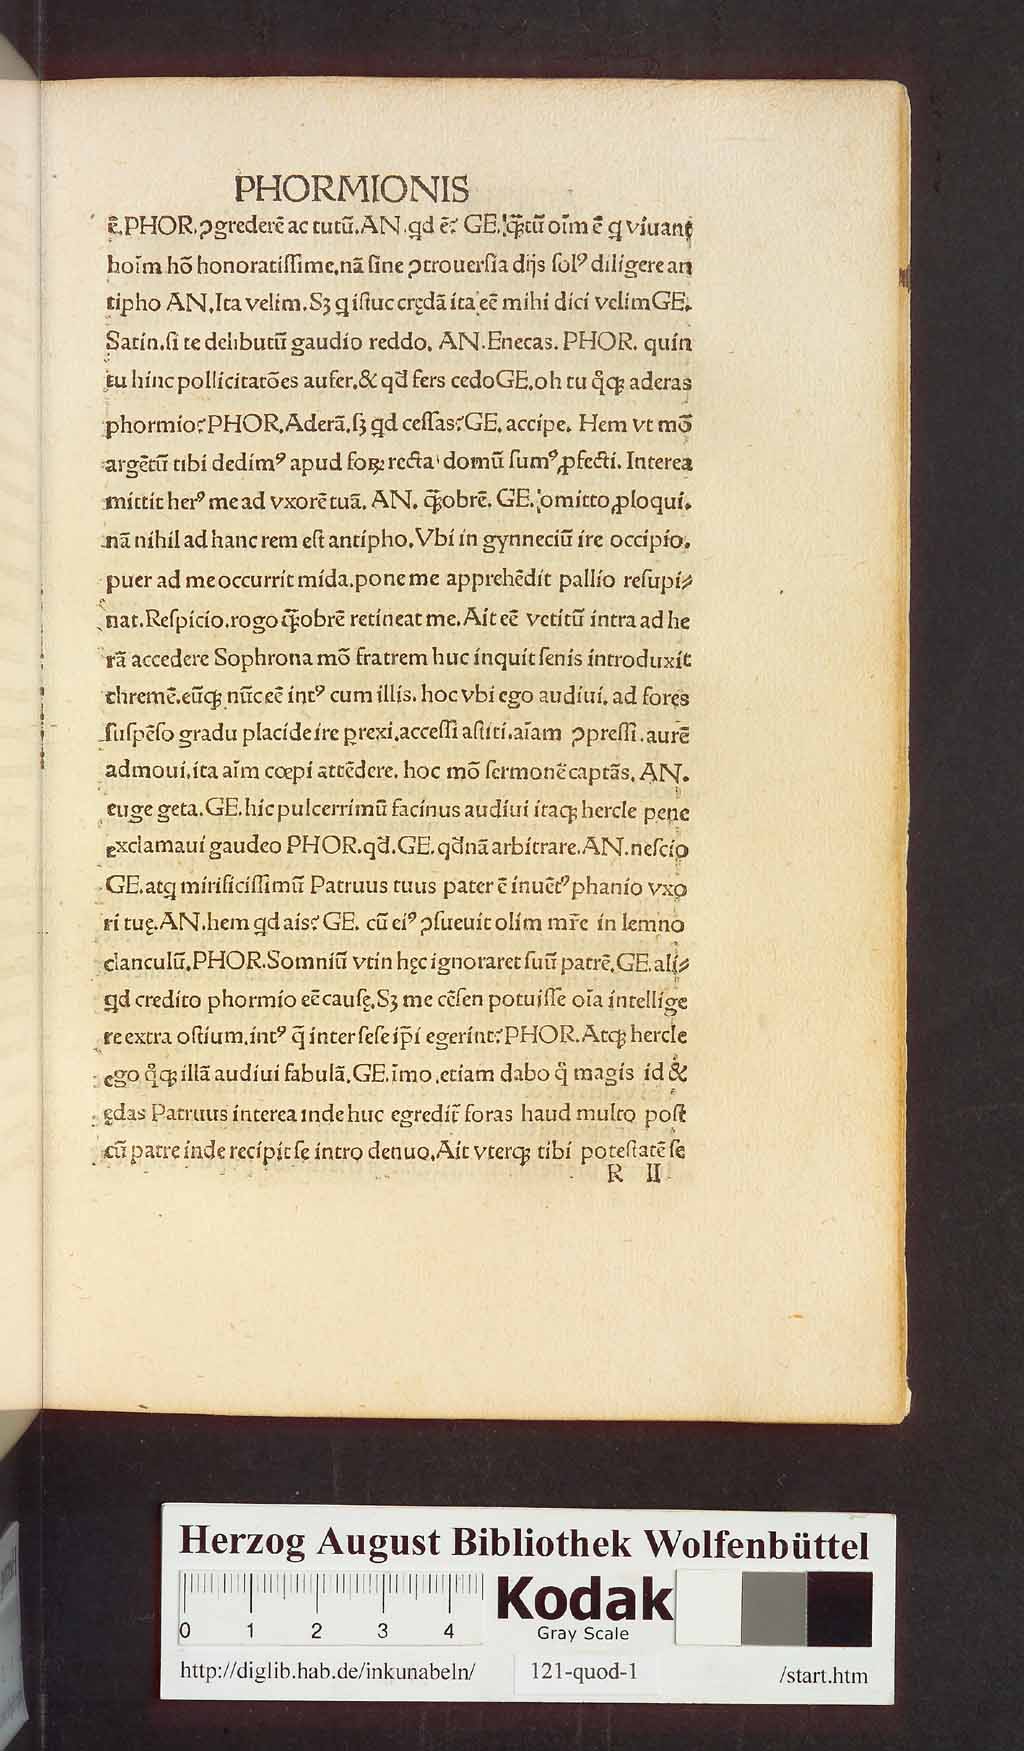 PHORMIONIS
ē.PHOR.ꝯgrederē ac tutū.AN.qd ē? GE.q̄tū oīm ē q viuant
hoīm hō honoratiſſime,nā ſine ꝯtrouerſia dijs ſolꝰ diligere an
tipho AN.Ita velim.Sꝫ q iſtuc crędā ita eē mihi dici velim GE.
Satin.ſi te delibutū gaudio reddo. AN.Enecas.PHOR. quin
tu hinc pollicitatōes aufer.& qd fers cedo GE.oh tu q̊qꝫ aderas
phormio? PHOR.Aderā.ſꝫ qd ceſſas? GE. accipe. Hem vt mō
argētū tibi dedimꝰ apud foꝝ recta domū ſumꝰ ꝓfecti. Interea
mittit herꝰ me ad vxorē tuā. AN. q̄obrē. GE. omitto ꝓloqui.
nā nihil ad hanc rem eſt antipho.Vbi in gynneciū ire occipio.
puer ad me occurrit mida.pone me apprehēdit pallio reſupi⸗
nat.Reſpicio.rogo q̄obrē retineat me.Ait eē vetitū intra ad he
rā accedere Sophrona mō fratrem huc inquit ſenis introduxit
chremē.eūqꝫ nūc eē intꝰ cum illis. hoc vbi ego audiui. ad fores
ſuſpēſo gradu placide ire prexi.acceſſi aſtiti.aīam ꝯpreſſi.aurē
admoui.ita aīm cœpi attēdere. hoc mō ſermonē captās. AN.
euge geta.GE.hic pulcerrimū facinus audiui itaqꝫ hercle pene
exclamaui gaudeo PHOR.qd.GE.qdnā arbitrare.AN.neſcio
GE.atq mirificiſſimū Patruus tuus pater ē inuētꝰ phanio vxo
ri tuę.AN.hem qd ais? GE. cū eiꝰ ꝯſueuit olim mr̄e in lemno
clanculū.PHOR.Somniū vtin hęc ignoraret ſuū patrē.GE.ali⸗
qd credito phormio eē cauſę.Sꝫ me cēſen potuiſſe oīa intellige
re extra oſtium.intꝰ q̄ inter ſeſe ip̄i egerint? PHOR.Atqꝫ hercle
ego q̊qꝫ illā audiui fabulā.GE.īmo.etiam dabo q̊ magis id &
ędas Patruus interea inde huc egredit̄ foras haud multo poſt
cū patre inde recipit ſe intro denuo.Ait vterqꝫ tibi poteſtatē ſe
R II
Herzog August Bibliothek Wolfenbüttel
0 1 2 3 4
Kodak
Gray Scale
http://diglib.hab.de/inkunabeln/ 121-quod-1 /start.htm